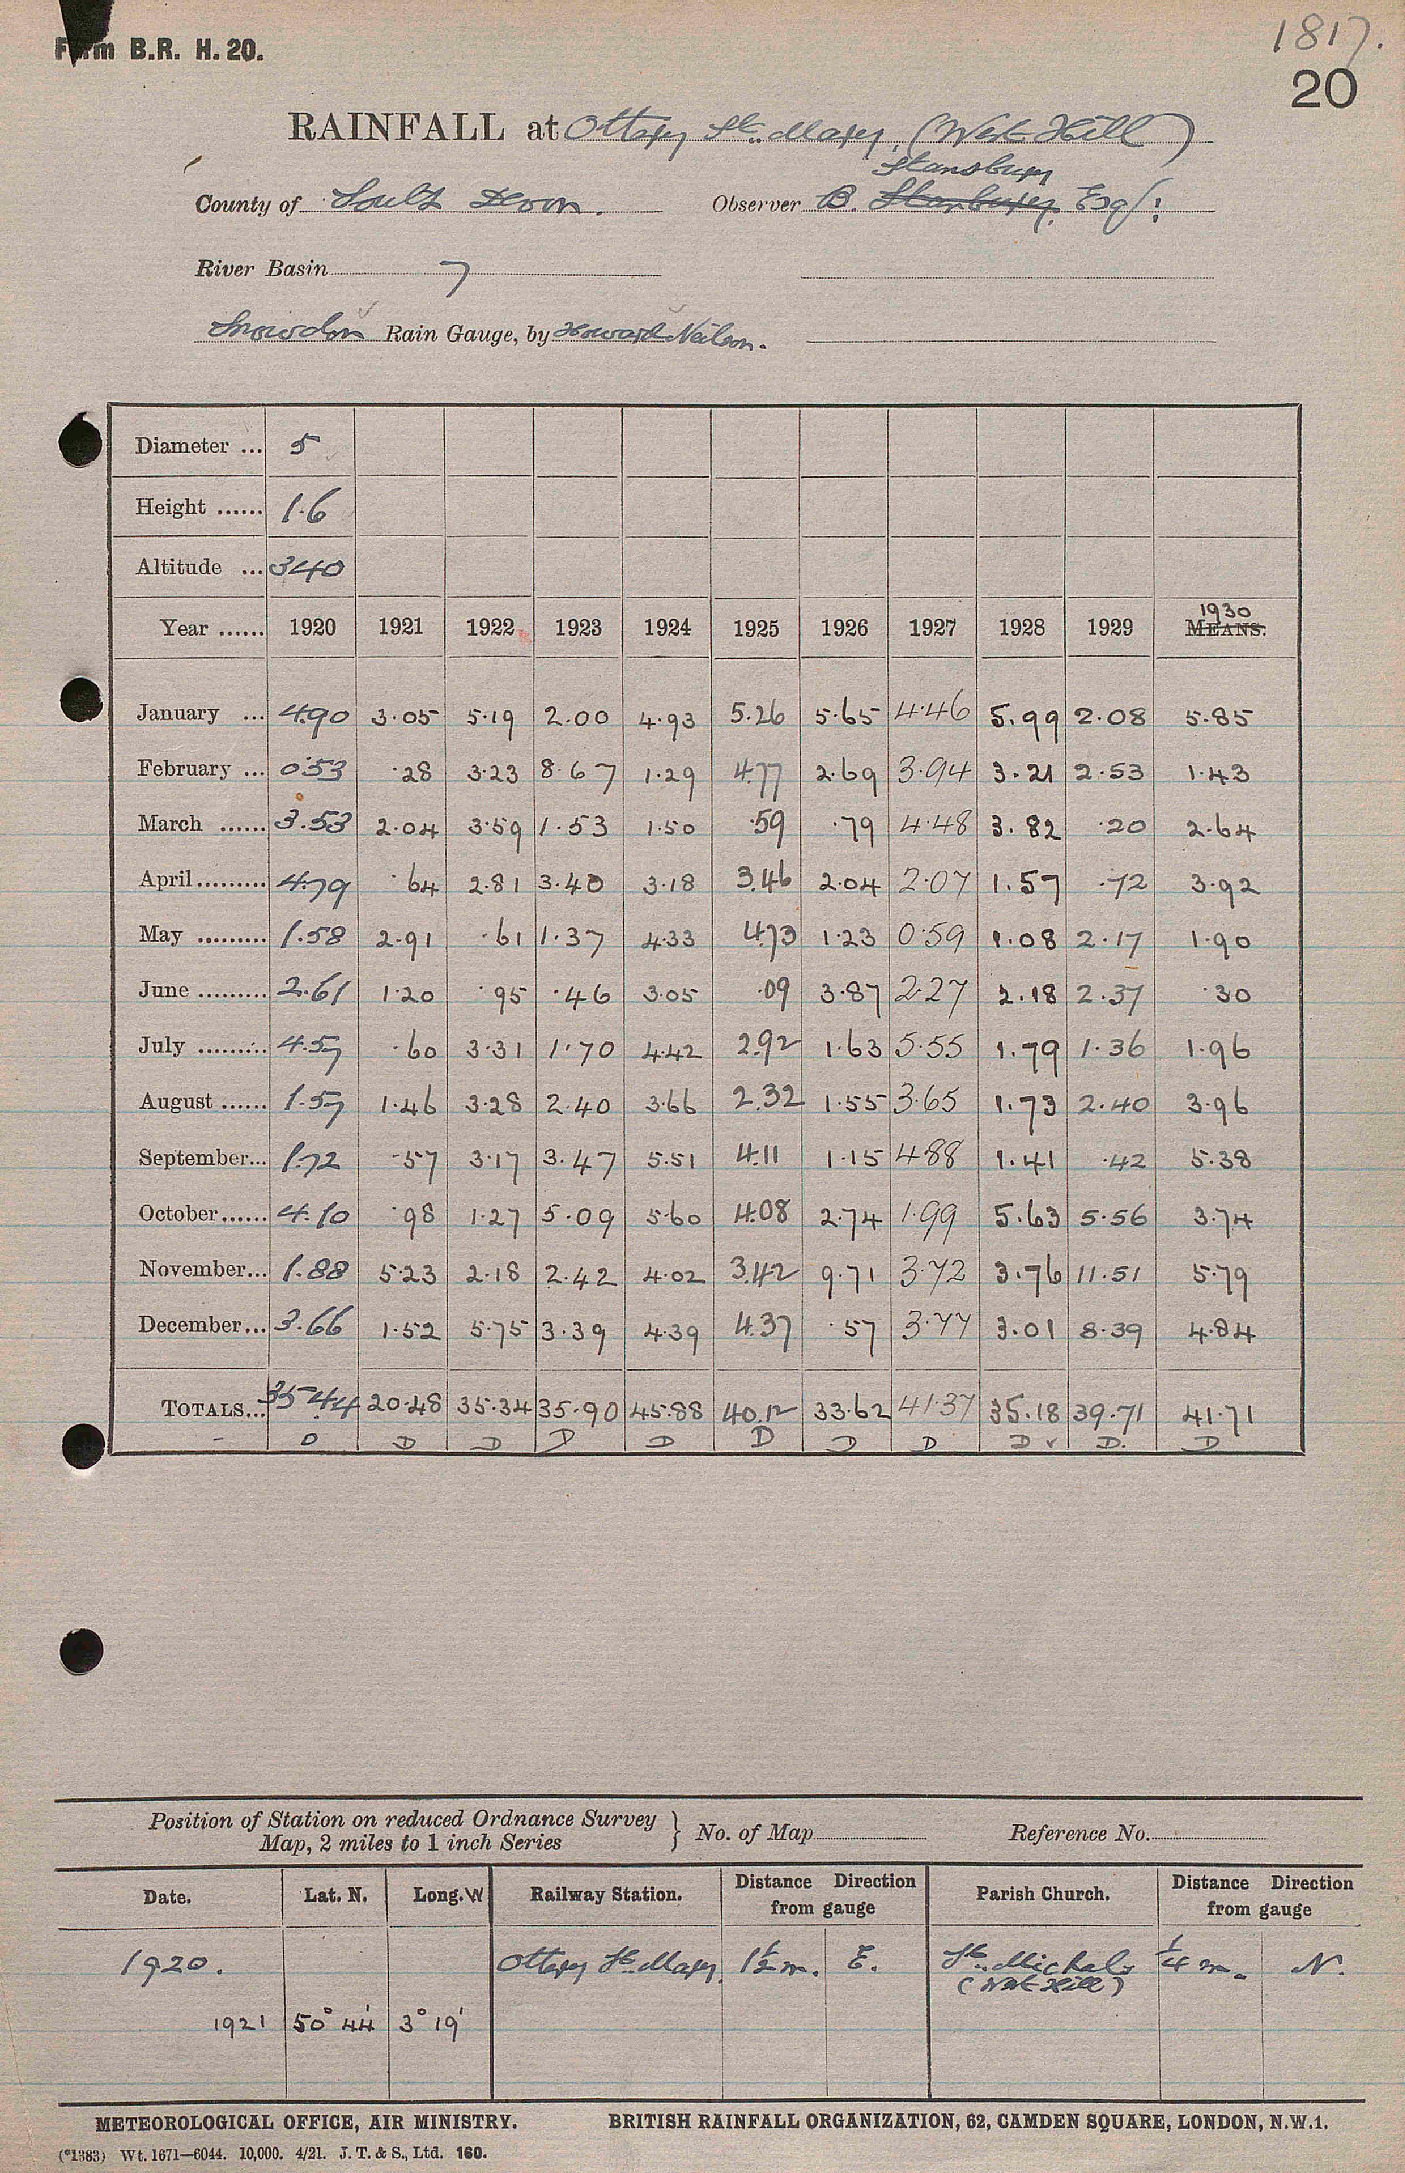 Form B.R. H. 20.
1817.
20
RAINFALL at Ottery St. Mary. (West Hill)
Stansbury
County of South Devon. Observer B. Stanbury Esq:
River Basin 7
Snowdon Rain Gauge, by Howard Neilson.
Diameter ... 5
Height ...... 1.6
Altitude ... 340
1930
Year ...... 1920 1921 1922 1923 1924 1925 1926 1927 1928 1929 MEANS.
January ... 4.90 3.05 5.19 2.00 4.93 5.26 5.65 4.46 5.99 2.08 5.85
February ... 0.53 .28 3.23 8.67 1.29 4.77 2.69 3.94 3.21 2.53 1.43
March ...... 3.53 2.04 3.59 1.53 1.50 .59 .79 4.48 3.82 .20 2.64
April ......... 4.79 .64 2.81 3.40 3.18 3.46 2.04 2.07 1.57 .72 3.92
May ......... 1.58 2.91 .61 1.37 4.33 4.73 1.23 0.59 1.08 2.17 1.90
June ......... 2.61 1.20 .95 .46 3.05 .09 3.87 2.27 2.18 2.37 .30
July ......... 4.57 .60 3.31 1.70 4.42 2.92 1.63 5.55 1.79 1.36 1.96
August ...... 1.57 1.46 3.28 2.40 3.66 2.32 1.55 3.65 1.73 2.40 3.96
September... 1.72 .57 3.17 3.47 5.51 4.11 1.15 4.88 1.41 .42 5.38
October...... 4.10 .98 1.27 5.09 5.60 4.08 2.74 1.99 5.63 5.56 3.74
November... 1.88 5.23 2.18 2.42 4.02 3.42 9.71 3.72 3.76 11.51 5.79
December... 3.66 1.52 5.75 3.39 4.39 4.37 .57 3.77 3.01 8.39 4.84
TOTALS... 35.44 20.48 35.34 35.90 45.88 40.12 33.62 41.37 35.18 39.71 41.71
D D D D D D D D D D. D
Position of Station on reduced Ordnance Survey
Map, 2 miles to 1 inch Series } No. of Map Reference No.
Date. Lat. N. Long. W Railway Station. Distance Direction from gauge Parish Church. Distance Direction from gauge
1920. Ottery St. Mary. 1½ m. E. St. Michaels ¼ m. N.
(West Hill)
1921 50° 44' 3° 19'
METEOROLOGICAL OFFICE, AIR MINISTRY. BRITISH RAINFALL ORGANIZATION, 62, CAMDEN SQUARE, LONDON, N.W.1.
(*1383) Wt. 1671—6044. 10,000. 4/21. J. T. & S., Ltd. 160.